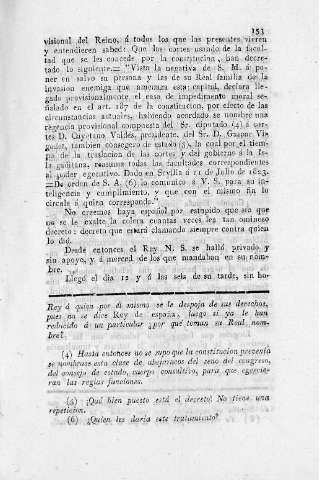 153
visional del Reino, á todos los que las presentes vieren
y entendieren sabed: Que las cortes usando de la facul-
tad que se les concede por la constitucion, han decre-
tado lo siguiente.= "Vista la negativa de S. M. á po-
ner en salvo su persona y las de su Real familia de la
invasion enemiga que amenaza esta capital, declara lle-
gado provisionalmente el caso de impedimento moral se-
ñalado en el art. 187 de la constitucion, por efecto de las
circunstancias actuales, habiendo acordado se nombre una
regencia provisional compuesta del Sr. diputado (4) á cor-
tes D. Cayetano Valdés, presidente, del Sr. D. Gaspar Vi-
godet, tambien consegero de estado (5), la cual por el tiem-
po de la traslacion de las cortes y del gobierno á la Is-
la gaditana, reasuma todas las facultades correspondientes
al poder egecutivo. Dado en Sevilla á 11 de Junio de 1823.
=De orden de S. A. (6) lo comunico á V. S. para su in-
teligencia y cumplimiento, y que con el mismo fin lo
circule á quien corresponda."
No creemos haya español por estupido que sea que
no se le exalte la colera cuantas veces lea tan ominoso
decreto: decreto que estará clamando siempre contra quien
lo dió.
Desde entonces el Rey N. S. se halló privado y
sin apoyo, y á merced de los que mandaban en su nom-
bre.
Llegó el dia 12 y á las seis de su tarde, sin ho-
Rey á quien por di mismo se le despoja de sus derechos,
pues no se dice Rey de españa, luego si ya le han
reducido á un particular ¿por qué toman su Real nom-
bre?
(4) Hasta entonces no se supo que la constitucion prevenia
se nombrase esta clase de abejarucos del seno del congreso,
del consejo de estado, cuerpo consultivo, para que egercie-
ran las regias funciones.
(5) ¡Qué bien puesto está el decreto! No tiene una
repeticion.
(6) ¿Quien les daria este tratamiento?